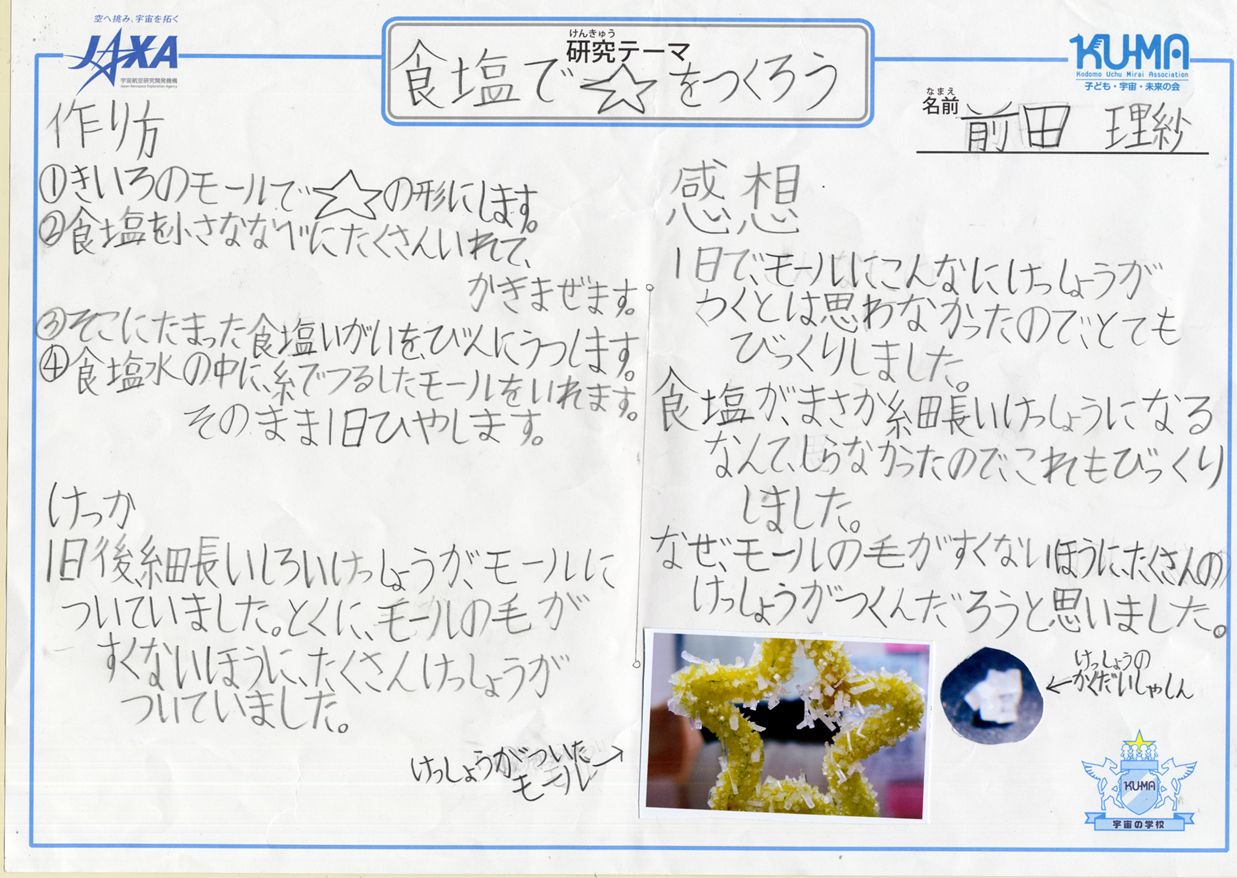 空へ挑み、宇宙を拓く
JAXA
宇宙航空研究開発機構
Japan Aerospace Exploration Agency
けんきゅう
研究テーマ
食塩で☆をつくろう
KU-MA
Kodomo Uchu Mirai Association
子ども・宇宙・未来の会
なまえ
名前 前田 理紗
作り方
①きいろのモールで☆の形にします。
②食塩を小さななべにたくさんいれて、
かきまぜます。
③そこにたまった食塩いがいを、びんにうつします。
④食塩水の中に、糸でつるしたモールをいれます。
そのまま1日ひやします。
けっか
1日後、細長いしろいけっしょうが、モールに
ついていました。とくに、モールの毛が
すくないほうに、たくさんけっしょうが
ついていました。
けっしょうがついた→
モール
感想
1日で、モールにこんなにけっしょうが
つくとは思わなかったので、とても
びっくりしました。
食塩が、まさか細長いけっしょうになる
なんて、しらなかったので、これもびっくり
しました。
なぜ、モールの毛がすくないほうに、たくさんの
けっしょうがつくんだろうと思いました。
けっしょうの
←かくだいしゃしん
KU-MA
宇宙の学校